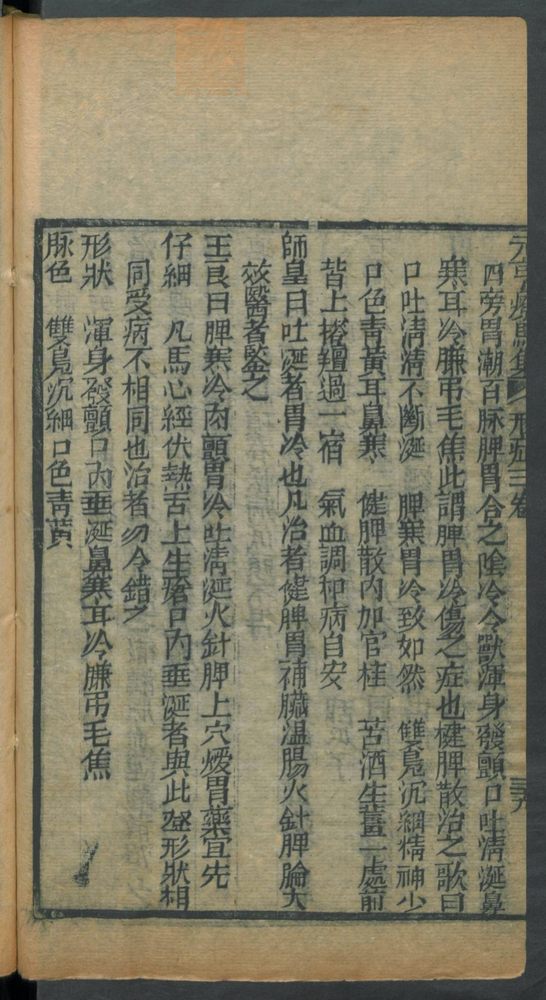 元亨療馬集 形症三卷
四旁胃潮百脉脾胃合之陰冷令獸渾身發顫口吐清涎鼻
寒耳冷𦟛吊毛焦此謂脾胃冷傷之症也健脾散治之歌曰
口吐清清不斷涎 脾寒胃冷致如然 雙鳧沉細精神少
口色青黃耳鼻寒 健脾散內加官桂 苦酒生薑一處煎
背上搭氊過一宿 氣血調和病自安
師皇曰吐涎者胃冷也凡治者健脾胃補臟溫腸火針脾腧大
效醫者鑒之
王良曰脾寒冷肉顫胃冷吐清涎火針脾上穴煖胃藥宜先
仔細 凡馬心經伏熱舌上生瘡口內垂涎者與此症形狀相
同受病不相同也治者勿令錯之
形狀 渾身發顫口內垂涎鼻寒耳冷𦟛吊毛焦
脉色 雙鳧沉細口色青黃